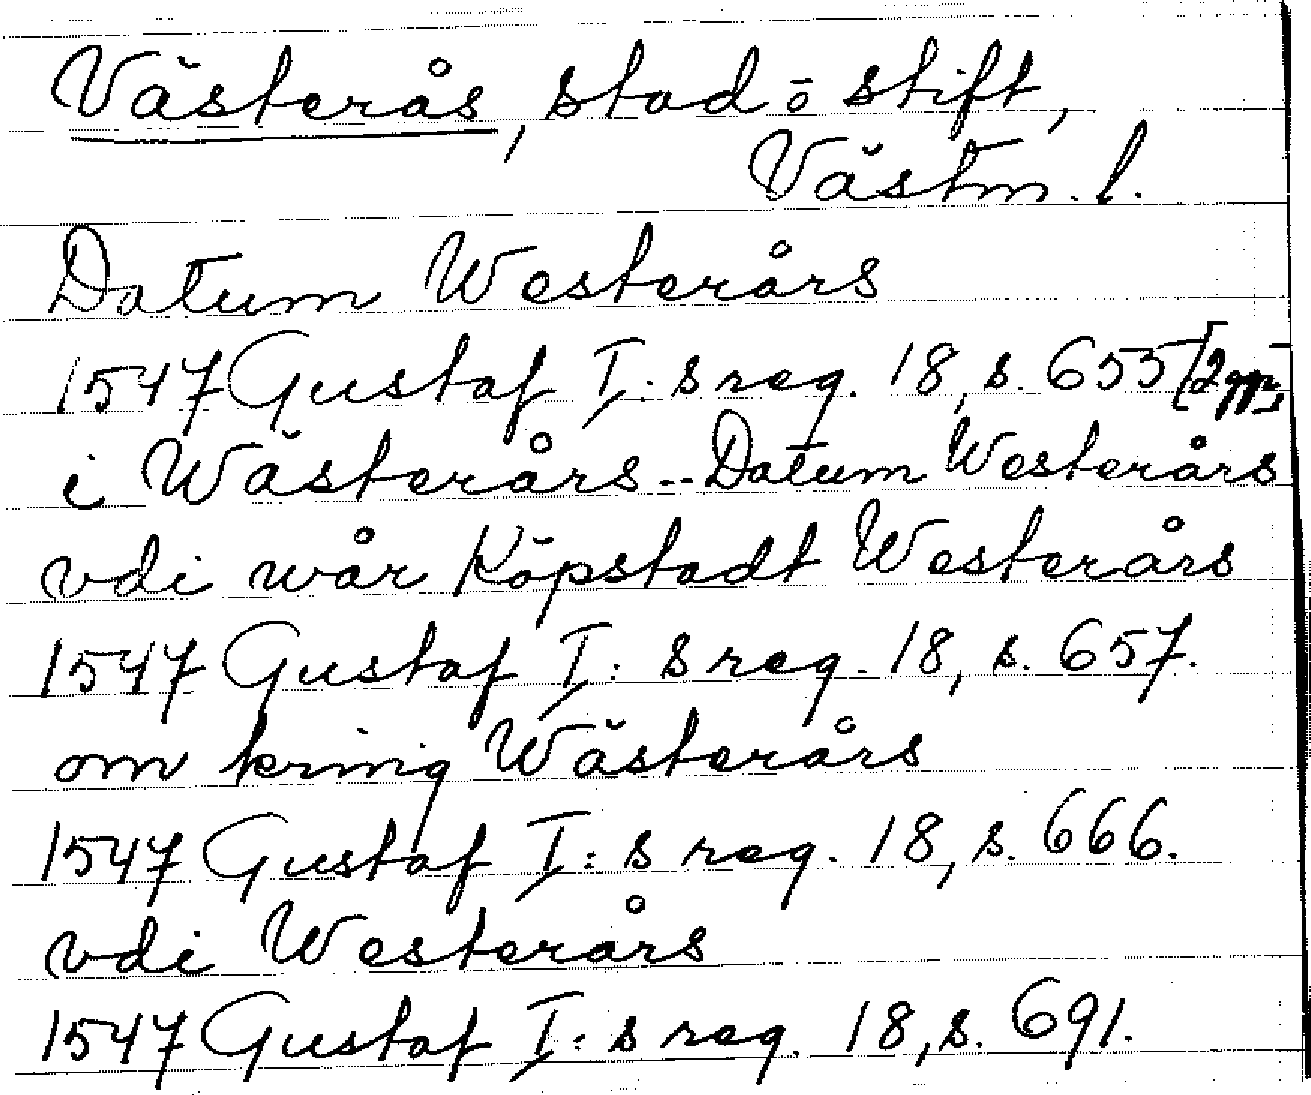 Västerås, stad ō stift,
Västm. l.
Datum Westerårs
1547 Gustaf I: s reg. 18, s. 655 [2 ggr]
i Wästerårs -- Datum Westerårs
vdi wår Köpstadt Westerårs
1547 Gustaf I: s reg. 18, s. 657.
om kring Wästerårs
1547 Gustaf I: s reg. 18, s. 666.
vdi Westerårs
1547 Gustaf I: s reg. 18, s. 691.